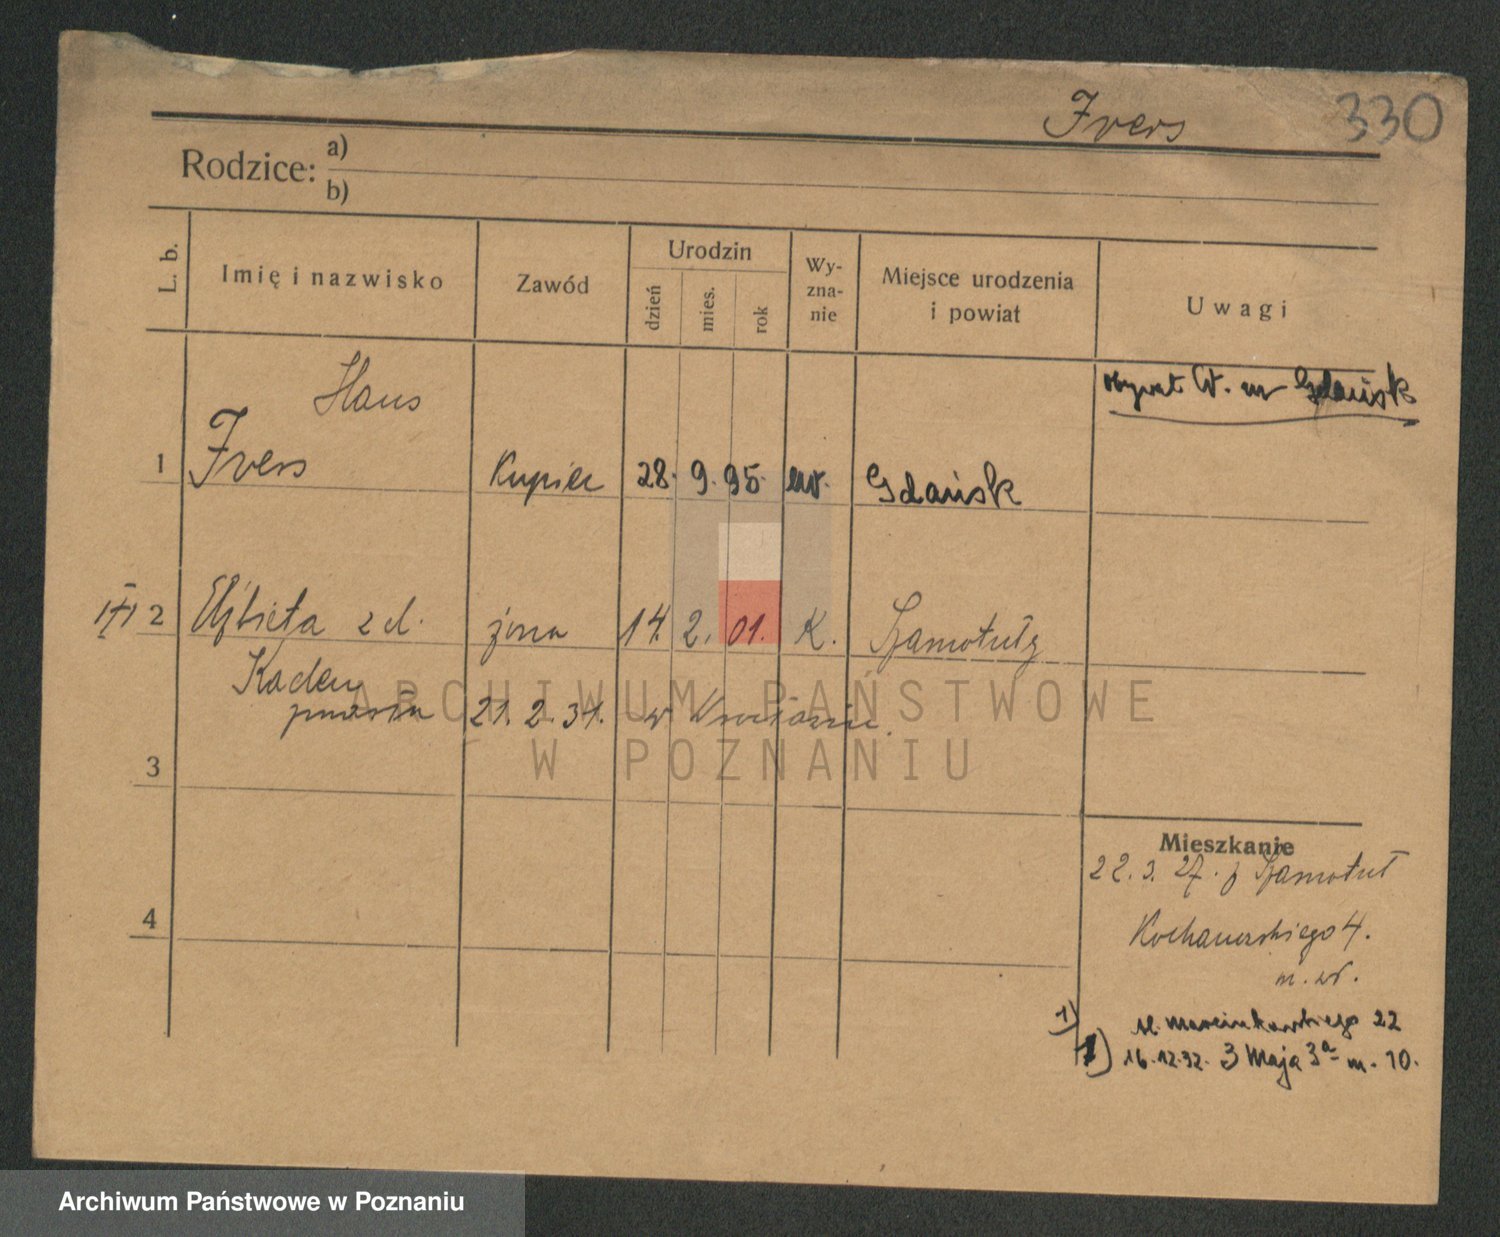 Ivers 330
Rodzice: a)
b)
L. b. Imię i nazwisko Zawód Urodzin dzień mies. rok Wy-zna-nie Miejsce urodzenia i powiat Uwagi
obywat W. m Gdańsk
Hans
1 Ivers Kupiec 28. 9. 95. ew. Gdańsk
2 Elżbieta z d. żona 14. 2. 01. K. Szamotuły
Kaden
21. 2. 31. w Wrocławiu.
3
ARCHIWUM PAŃSTWOWE
W POZNANIU
Mieszkanie
22. 3. 27. z Szamotuł
4
Kochanowskiego 4.
m. wł.
1) ul. Marcinkowskiego 22
1) 16.12.32. 3 Maja 3a m. 10.
Archiwum Państwowe w Poznaniu